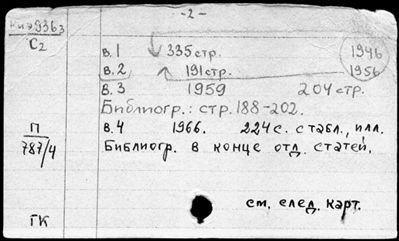 - 2 -
С2
в. 1 335 стр. 1946
в. 2 191 стр. 1956
в. 3 1959 204 стр.
Библиогр.: стр. 188-202.
П
787/4
в. 4 1966. 224 с. с табл., илл.
Библиогр. в конце отд. статей.
см. след. карт.
ГК